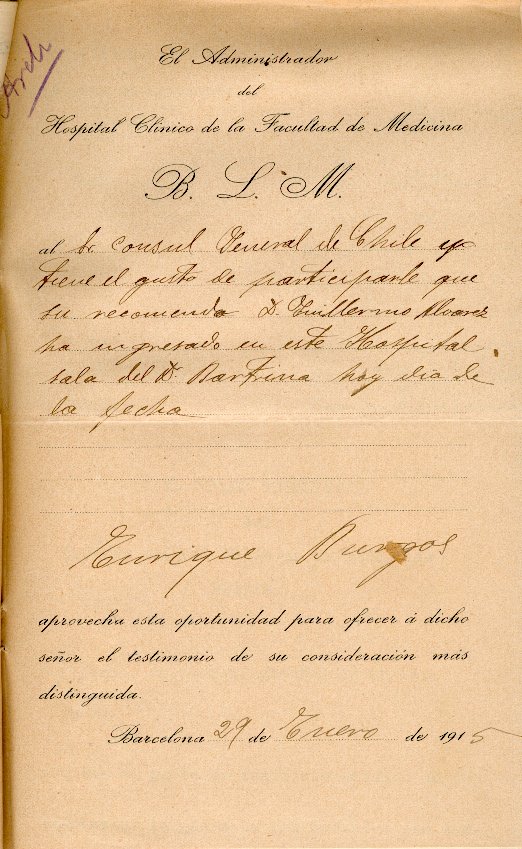 Arch
El Administrador
del
Hospital Clínico de la Facultad de Medicina
B. L. M.
al Sr Consul General de Chile y
tiene el gusto de participarle que
su recomendado D. Guillermo Alvarez
ha ingresado en este Hospital
sala del Dr. Bartrina hoy dia de
la fecha
Enrique Burgos
aprovecha esta oportunidad para ofrecer á dicho
señor el testimonio de su consideración más
distinguida.
Barcelona 29 de Enero de 1915